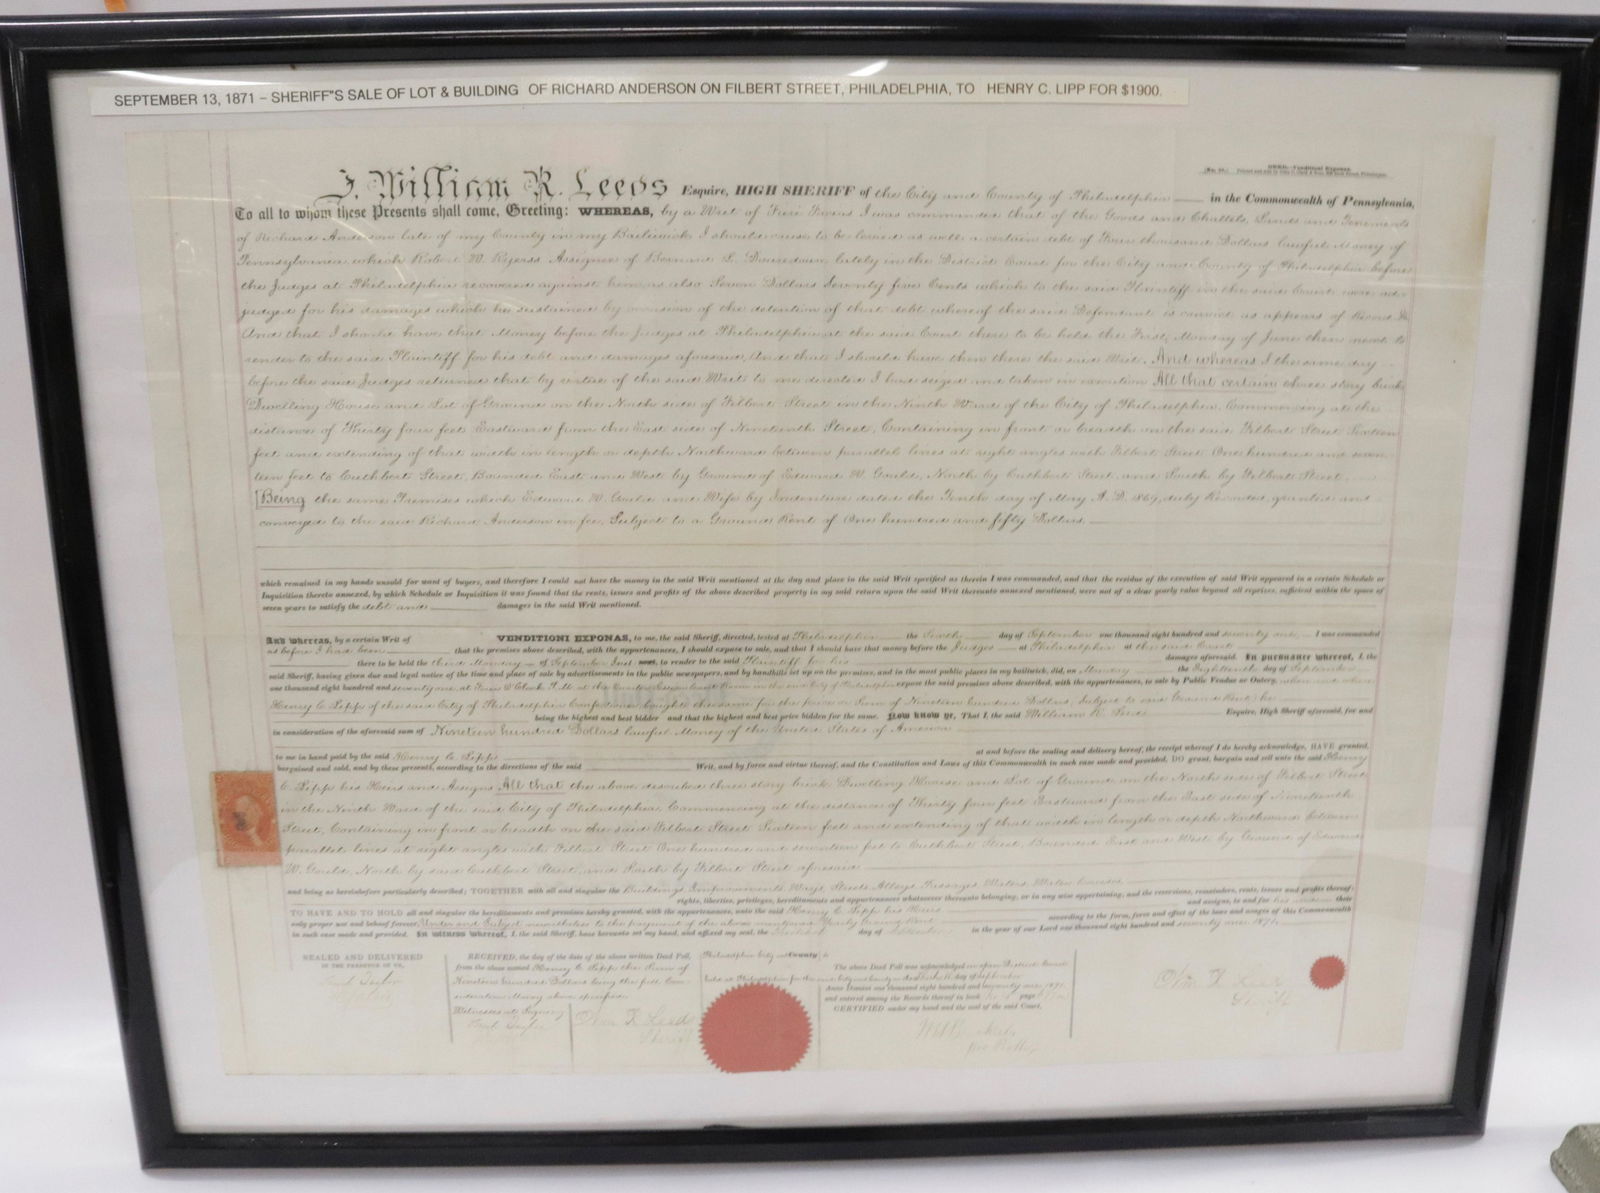 SEPTEMBER 13, 1871 – SHERIFF"S SALE OF LOT & BUILDING OF RICHARD ANDERSON ON FILBERT STREET, PHILADELPHIA, TO HENRY C. LIPP FOR $1900.
DEED.—Venditioni Exponas.
I, William R. Leeds Esquire, HIGH SHERIFF of the City and County of Philadelphia in the Commonwealth of Pennsylvania,
To all to whom these Presents shall come, Greeting: WHEREAS, by a Writ of Fieri Facias I was commanded that of the Goods and Chattels Lands and Tenements
of Richard Anderson late of my County in my Bailiwick I should cause to be levied as well a certain debt of Four thousand Dollars lawful Money of
Pennsylvania which Robert W. Ryerss Assignee of lately in the District Court for the City and County of Philadelphia before
the Judges at Philadelphia recovered against him as also Seven Dollars Seventy five Cents which to the said Plaintiff in the said Court were ad-
judged for his damages which he sustained by occasion of the detention of that debt whereof the said Defendant is convict as appears of Record &c
And that I should have that Money before the Judges at Philadelphia at the said Court there to be held the First Monday of June then next to
render to the said Plaintiff for his debt and damages aforesaid, And that I should have then there the said Writ. And whereas I the same day
before the said Judges returned that by virtue of the said Writ to me directed I had seized and taken in execution All that certain three story brick
Dwelling House and Lot of Ground on the North side of Filbert Street in the Ninth Ward of the City of Philadelphia, Commencing at the
distance of Thirty four feet Eastward from the East side of Nineteenth Street, Containing in front or breadth on the said Filbert Street Sixteen
feet and extending of that width in length or depth Northward between parallel lines at right angles with Filbert Street One hundred and seven-
teen feet to Cuthbert Street, Bounded East and West by Ground of Edward W. Gould, North by Cuthbert Street, and South by Filbert Street.
[Being the same Premises which Edward W. Gould and Wife by Indenture dated the Tenth day of May A.D. 1869, duly Recorded, granted and
conveyed to the said Richard Anderson in fee, Subject to a Ground Rent of One hundred and fifty Dollars.
which remained in my hands unsold for want of buyers, and therefore I could not have the money in the said Writ mentioned at the day and place in the said Writ specified as therein I was commanded, and that the residue of the execution of said Writ appeared in a certain Schedule or
Inquisition thereto annexed, by which Schedule or Inquisition it was found that the rents, issues and profits of the above described property in my said return upon the said Writ thereunto annexed mentioned, were not of a clear yearly value beyond all reprises, sufficient within the space of
seven years to satisfy the debt and damages in the said Writ mentioned.
And whereas, by a certain Writ of VENDITIONI EXPONAS, to me, the said Sheriff, directed, tested at Philadelphia the day of September one thousand eight hundred and seventy one I was commanded
as before I had been that the premises above described, with the appurtenances, I should expose to sale, and that I should have that money before the Judges at Philadelphia at the said Court
there to be held the third Monday of September Inst. next, to render to the said Plaintiff for his damages aforesaid. In pursuance whereof, I, the
said Sheriff, having given due and legal notice of the time and place of sale by advertisements in the public newspapers, and by handbills set up on the premises, and in the most public places in my bailiwick, did, on Monday the day of September
one thousand eight hundred and seventy one, at expose the said premises above described, with the appurtenances, to sale by Public Vendue or Outcry, when and where
Henry C. Lipp of the said City of Philadelphia Confectioner bought the same for the price or Sum of Nineteen hundred Dollars, Subject to said Ground Rent, he
being the highest and best bidder and that the highest and best price bidden for the same. Now know ye, That I, the said William R. Leeds Esquire, High Sheriff aforesaid, for and
in consideration of the aforesaid sum of Nineteen hundred Dollars lawful Money of the United States of America
to me in hand paid by the said Henry C. Lipp at and before the sealing and delivery hereof, the receipt whereof I do hereby acknowledge, HAVE granted,
bargained and sold, and by these presents, according to the directions of the said Writ, and by force and virtue thereof, and the Constitution and Laws of this Commonwealth in such case made and provided, DO grant, bargain and sell unto the said Henry
C. Lipp his Heirs and Assigns All that the above described three story brick Dwelling House and Lot of Ground on the North side of Filbert Street
in the Ninth Ward of the said City of Philadelphia, Commencing at the distance of Thirty four feet Eastward from the East side of Nineteenth
Street, Containing in front or breadth on the said Filbert Street Sixteen feet and extending of that width in length or depth Northward between
parallel lines at right angles with Filbert Street One hundred and seventeen feet to Cuthbert Street, Bounded East and West by Ground of Edward
W. Gould, North by said Cuthbert Street, and South by Filbert Street aforesaid
and being as hereinbefore particularly described; TOGETHER with all and singular the Buildings Improvements, Ways, Streets Alleys Passages Waters, Water Courses
rights, liberties, privileges, hereditaments and appurtenances whatsoever thereunto belonging, or in any wise appertaining, and the reversions, remainders, rents, issues and profits thereof:
TO HAVE AND TO HOLD all and singular the hereditaments and premises hereby granted, with the appurtenances, unto the said Henry C. Lipp his Heirs and assigns, to and for his their
only proper use and behoof forever, Under and Subject to the payment of the above mentioned Yearly Ground Rent according to the form, force and effect of the laws and usages of this Commonwealth
in such case made and provided. In witness whereof, I, the said Sheriff, have hereunto set my hand, and affixed my seal, the day of in the year of our Lord one thousand eight hundred and seventy one 1871.
SEALED AND DELIVERED
IN THE PRESENCE OF US,
RECEIVED, the day of the date of the above written Deed Poll,
from the above named Henry C. Lipp the Sum of
Nineteen hundred Dollars being the full Con-
sideration Money above specified.
Witnesses at Signing
Wm R Leeds
Sheriff
Philadelphia City and County ss
The above Deed Poll was acknowledged in open District Court
held at Philadelphia for the said City and County day of September
Anno Domini one thousand eight hundred and seventy one 1871,
and entered among the Records thereof in book page
CERTIFIED under my hand and the seal of the said Court.
pro Prothy
Wm R Leeds
Sheriff